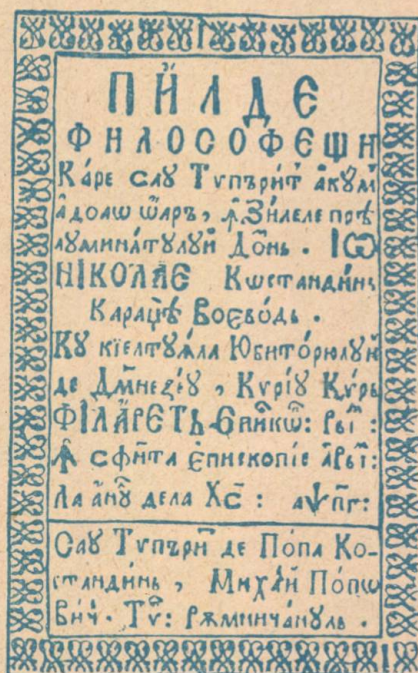 ПИ́ЛДЕ
ФИЛОСОФЕЩИ
Ка́ре саꙋ Тѵпъри́т акꙋ́м
а̀доаѡ ѡ҆аръ, ꙟ҆ Зи́леле прѣ
лꙋмина́тꙋлꙋй До́мнь. ІѠ
НІКОЛА́Є Кѡстанди́нь
Караџѣ̀ Воєво́дь.
Кꙋ кїелтꙋѧ́ла Юбито́рюлꙋй
де Дꙋ́мнеꙁеꙋ, Кѵріꙋ Кѵ́рь
ФІЛА́РЕТЬ Єпи́кѡ: Ры́:
Ꙟ҆ сфи́нта Єпископіе а҆Ры́:
Ла а҆нꙋ̀ дела Хс҃: аѱпг:
Саꙋ Тѵпъри́ де По́па Ко-
станди́нь, Миха́й По́пѡ
ви́ч. Тѵ̀: Рѫмничѧ́нꙋль.